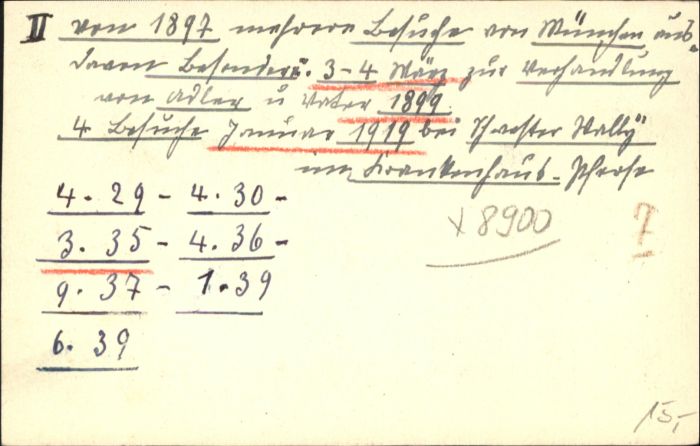 II von 1897 mehrere Besuche von München aus,
davon besonders. 3-4 März zur Verhandlung
von Adler u Vater 1899.
4 Besuche Januar 1919 bei Schwester Wally
im Krankenhaus-Pferse
4. 29 - 4. 30 -
3. 35 - 4. 36 -
9. 37 - 1. 39
6. 39
x 8900
7
15,-